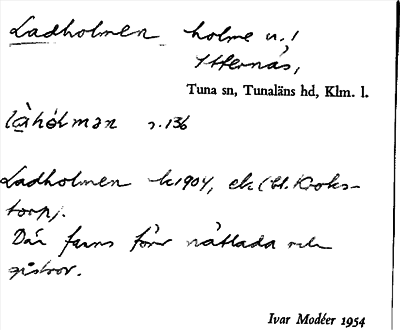 Ladholmen holme n. 1
Ytternäs,
Tuna sn, Tunaläns hd, Klm. l.
s. 136
Ladholmen k 1904, ek (bl. Kroks-
torp).
Där fanns förr nätlada och
gistvor.
Ivar Modéer 1954